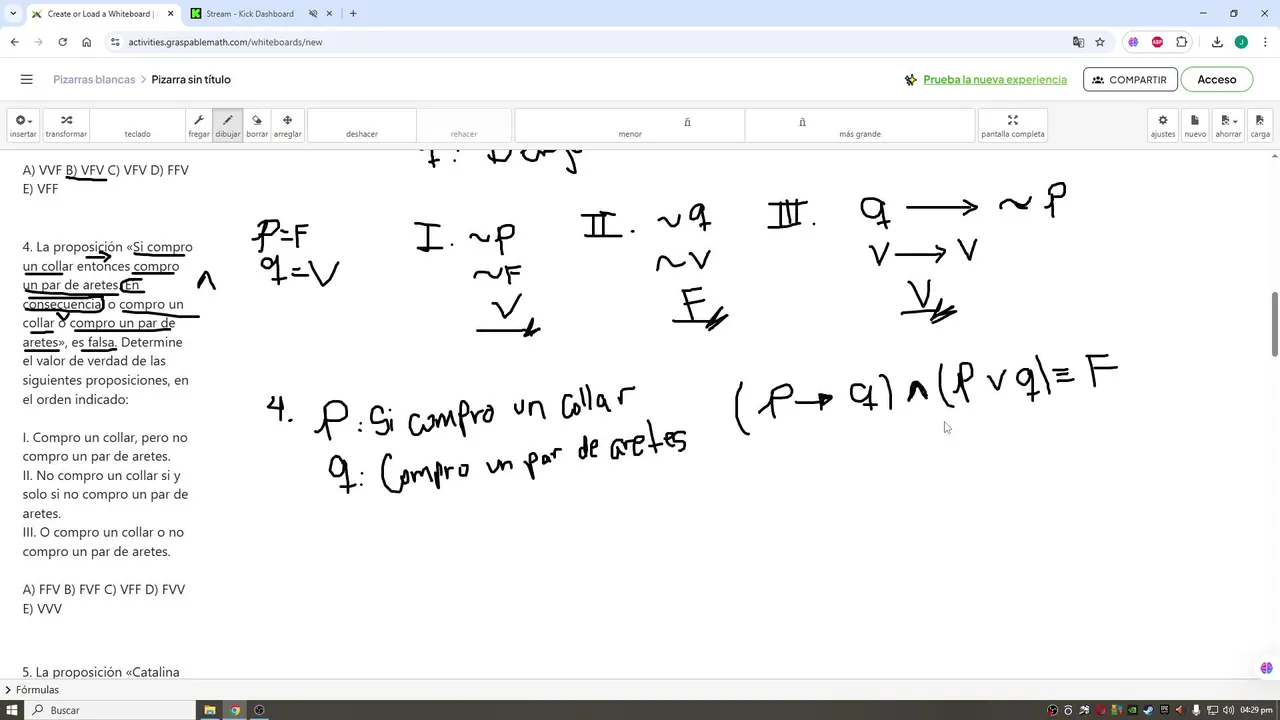 Create or Load a Whiteboard |
Stream - Kick Dashboard
activities.graspablemath.com/whiteboards/new
Pizarras blancas > Pizarra sin título
Prueba la nueva experiencia
COMPARTIR
Acceso
insertar transformar teclado fregar dibujar borrar arreglar deshacer rehacer menor más grande pantalla completa ajustes nuevo ahorrar carga
A) VVF B) VFV C) VFV D) FFV
E) VFF
4. La proposición «Si compro
un collar entonces compro
un par de aretes. En
consecuencia o compro un
collar o compro un par de
aretes», es falsa. Determine
el valor de verdad de las
siguientes proposiciones, en
el orden indicado:
I. Compro un collar, pero no
compro un par de aretes.
II. No compro un collar si y
solo si no compro un par de
aretes.
III. O compro un collar o no
compro un par de aretes.
A) FFV B) FVF C) VFF D) FVV
E) VVV
5. La proposición «Catalina
→
∧
∨
p=F
q=V
I. ~p
~F
V
II. ~q
~V
F
III. q → ~p
V → V
V
4. p: Si compro un collar
q: Compro un par de aretes
(p → q) ∧ (p ∨ q) ≡ F
Fórmulas
Buscar
04:29 pm